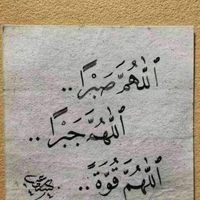 ٱللَّهُمَّ صَبْرًا ..
ٱللَّهُمَّ جَبْرًا ..
ٱللَّهُمَّ قُوَّةً ..